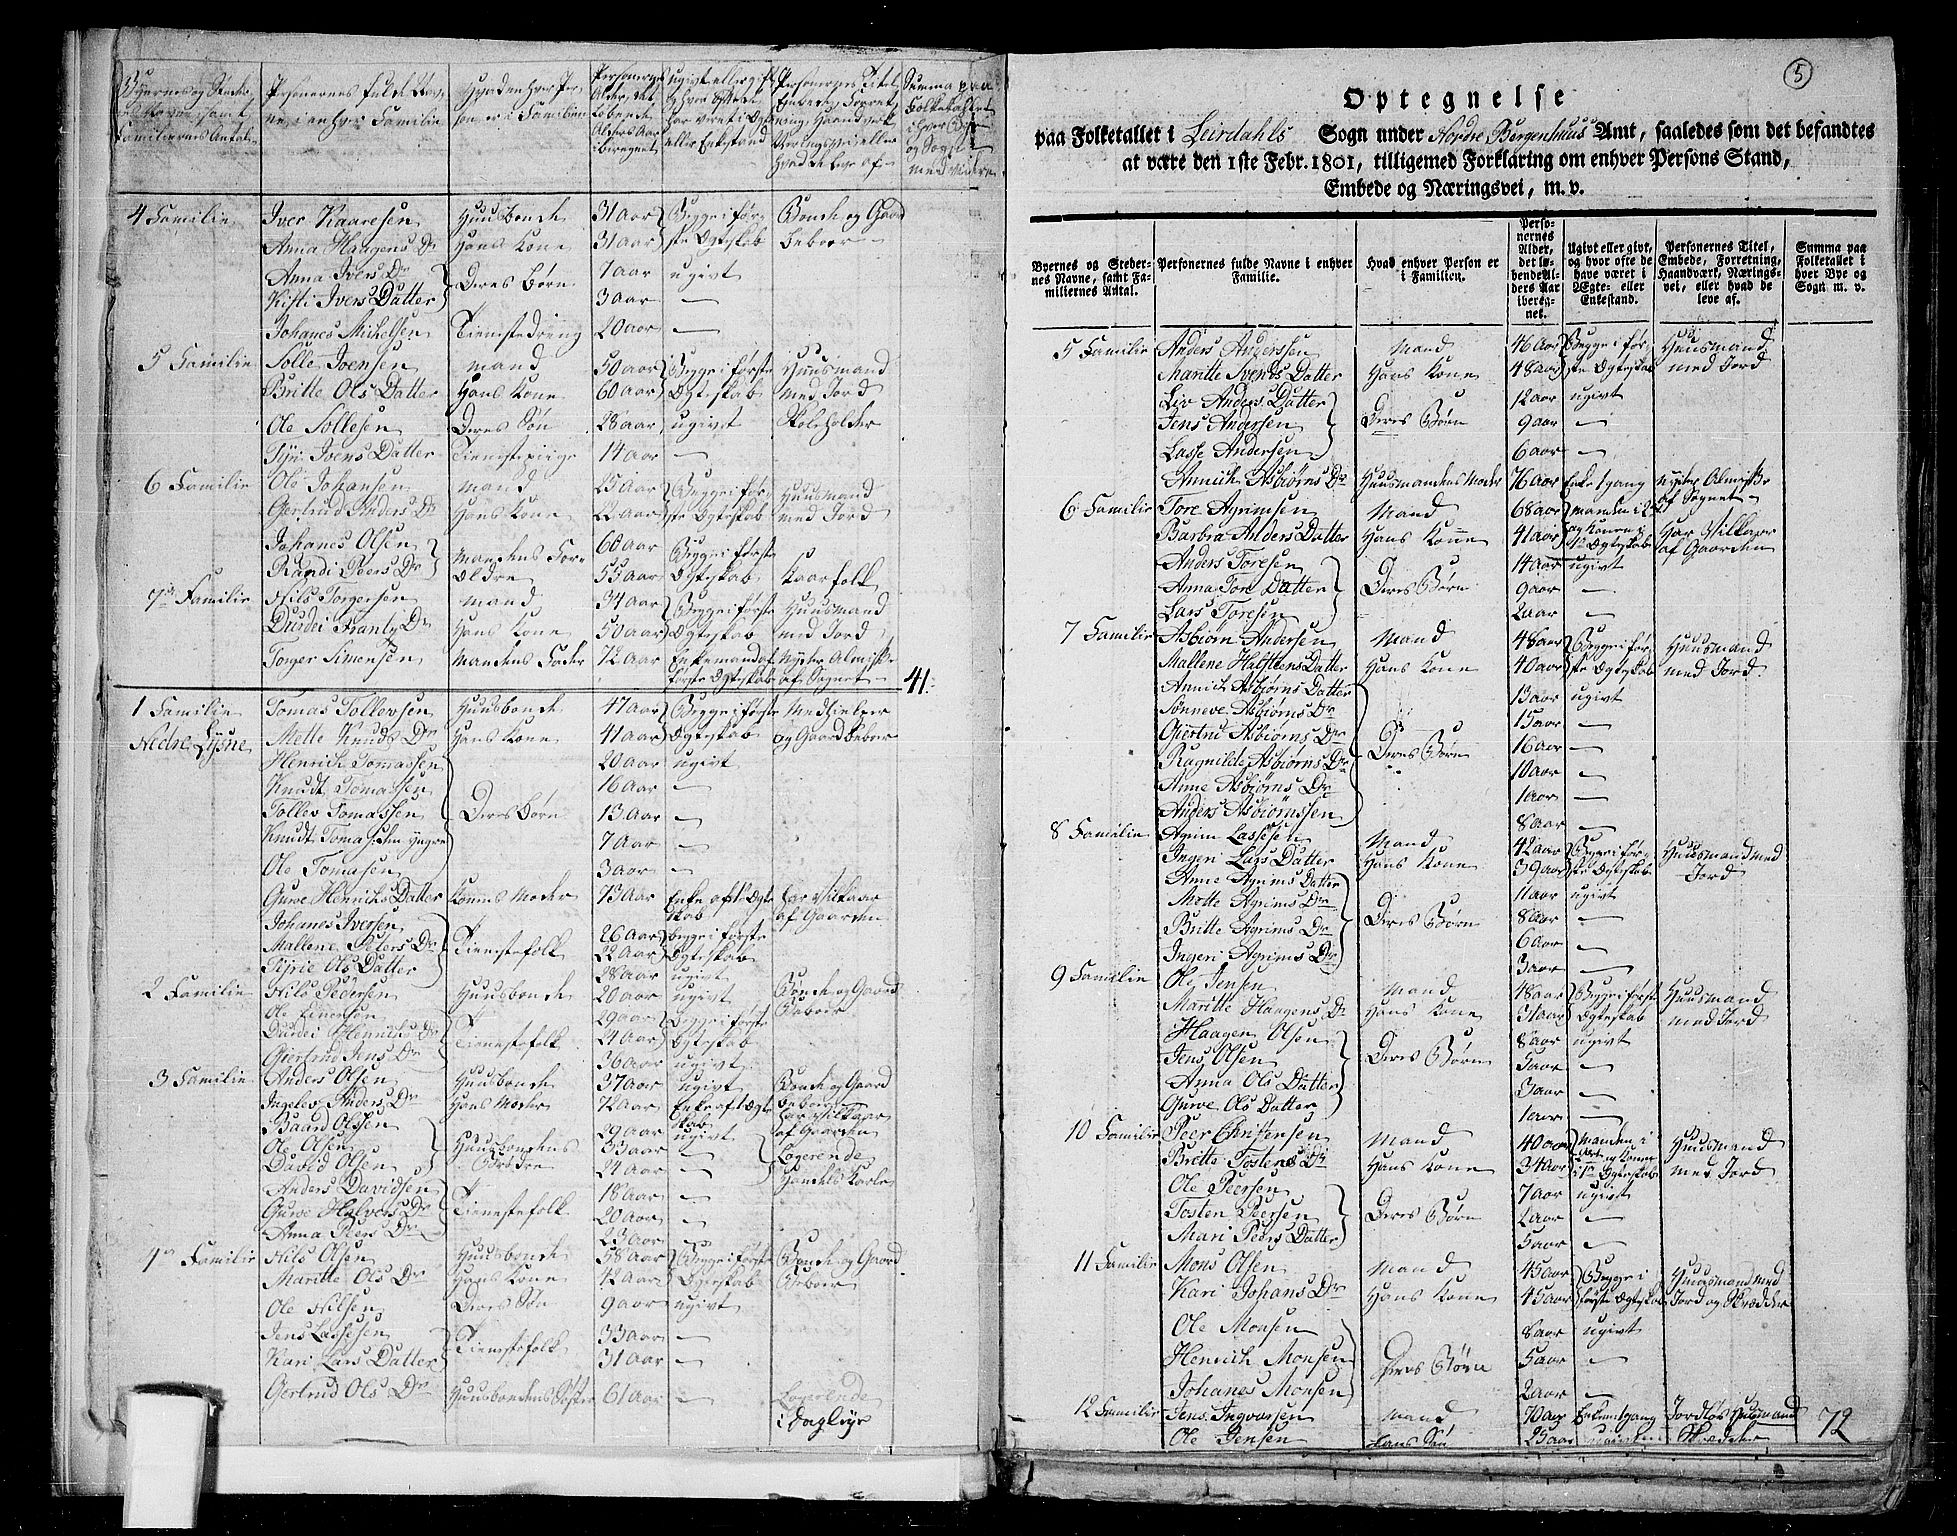 Byernes og Stedernes Navne, samt Familiernes Antal
Personernes fulde Navne i enhver Familie
Hvad enhver Person er i Familien
Personernes Alder, det løbende Alders Aar iberegnet
Summa paa Folketallet i hver Bye og Sogn med videre
4 Familie Iver Kaaresen Huusbonde 31 Aar Begge i før- Bonde og Gaard
Anna Haagens Dr Hans Kone 31 Aar ste Ægteskab beboer
Anna Ivers Dr Deres Børn 7 aar ugivt
Kisti Ivers Datter 3 aar —
Johanes Michelsen Tienestedreng 20 aar —
5 Familie Solle Ivensen mand 50 aar Begge i første Huusmand
Britte Ols Datter Hans Kone 60 aar Ægteskab med Jord
Ole Sollesen Deres Søn 28 aar ugivt Skoleholder
Ivens Datter Tienestepiige 14 aar —
6 Familie Ole Johansen mand 25 Aar Begge i før- Huusmand
Gertrud Anders Dr Hans Kone 22 aar ste Ægteskab med Jord
Johanes Olsen mandens For- 60 aar Begge i første
Randi Peers Dr ældre 55 aar Ægteskab Kaarfolk
7de Familie Nils Torgersen mand 34 aar Begge i første Huusmand
Durdei Dr Hans Kone 50 aar Ægteskab med Jord
Torger Simensen Mandens Fader 72 aar Enkemand af Nyder Almisse
første Ægteskab af Sognet — 41.
1 Familie Tomas Tollevsen Huusbonde 47 aar Begge i første Medsieier
Nedre Lysne Mette Knuds Dr Hans Kone 41 aar Ægteskab og Gaard beboer
Henrich Tomassen 20 aar ugivt
Knudt Tomassen 16 Aar —
Tollev Tomassen Deres børn 13 aar —
Knudt Tomassen yngre 7 aar —
Ole Tomasen 3 aar —
Gurve Henrichs Datter Konens Moder 73 Aar Enke af 1te Ægte- har Vilkaar
skab af Gaarden
Johanes Iversen 26 aar begge i første
Mallene Peters Dr Tienestefolk 22 aar Ægteskab
Ols Datter 28 aar ugivt
2 Familie Nils Pedersen Huusbonde 20 aar ugivt Bonde og Gaard
Ole Einersen 29 aar Begge i første Beboer
Durdei Henrichs Dr Tienestefolk 24 aar Ægteskab
Giertrud Jens Dr 36 aar ugivt
3 Familie Anders Olsen Huusbonde 37 aar ugivt Bonde og Gaard
Ingelev Anders Dr Hans Moder 72 aar Enke af 1 Ægte- beboer
skab har Vilkaar
Baard Olssen 29 aar ugivt af Gaarden
Ole Olsen Huusbondens 33 aar — Logerende
David Olsen Brødre 24 aar — Handels Karle
Anders Davidsen 18 aar —
Gurve Halvors Dr Tienestefolk 20 aar —
Anna Peers Dr 23 aar —
4de Familie Nils Olsen Huusbonde 58 aar Begge i først Bonde og Gaard
Maritte Ols Dr Hans Kone 52 aar Ægteskab Beboer
Ole Nilsen Deres Søn 9 aar ugivt
Jens Lassesen Tienestefolk 33 aar —
Kari Lars Datter 31 aar —
Gertrud Ols Dr Huusbondens Søster 61 aar — Logerende
i Dagleje
5
Optegnelse
paa Folketallet i Leirdahls Sogn under Nordre Bergenhuus Amt, saaledes som det befandtes
at være den 1ste Febr. 1801, tilligemed Forklaring om enhver Persons Stand,
Embede og Næringsvei, m. v.
Byernes og Stedernes Navne, samt Familiernes Antal.
Personernes fulde Navne i enhver Familie.
Hvad enhver Person er i Familien.
Personernes Alder, det løbende Alders Aar iberegnet.
Ugivt eller givt, og hvor ofte de have været i Ægte- eller Enkestand.
Personernes Titel, Embede, Forretning, Haandværk, Næringsvei, eller hvad de leve af.
Summa paa Folketallet i hver Bye og Sogn m. v.
5 Familie Anders Anderssen Mand 46 Aar Begge i før- Huusmand
Maritte Svends Datter Hans Kone 48 aar ste Ægteskab med Jord
Liv Anders Datter 12 aar ugivt
Jens Andersen Deres Børn 9 aar —
Lasse Andersen 6 aar —
Annich Asbiørns Dr Huusmandens Moder 76 aar Enke 1 gang nyder Almisse
af Sognet —
6 Familie Tore Agrimsen Mand 68 aar manden i 2det
Barbra Anders Datter Hans Kone 41 aar og Konen i Har Vilkaar
1te Ægteskab af Gaarden
Anders Toresen 14 aar ugivt
Anna Tore Datter Deres Børn 9 aar —
Lars Toresen 2 aar —
7 Familie Asbiørn Andersen Mand 48 aar Begge i før- Huusmand
Mallene Halsteens Datter Hans Kone 40 aar ste Ægteskab med Jord
Annich Asbiørns Datter 13 aar ugivt
Sønneve Asbiørns Dr 15 aar —
Giertrud Asbiørns Dr Deres Børn 16 aar —
Ragnilde Asbiørns Dr 10 aar —
Anne Asbiørns Dr 1 aar —
Anders Asbiørnssen 8 aar —
8 Familie Agrim Lassesen Mand 42 aar Begge i før- Huusmand med
Ingeri Lars Datter Hans Kone 39 aar ste Ægteskab Jord
Anne Agrims Datter 11 aar ugivt
Mette Agrims Dr Deres Børn 8 aar —
Britte Agrims Dr 6 aar —
Ingeri Agrims Dr 3 aar —
9 Familie Ole Jensen Mand 48 aar Begge i første Huusmand
Maritte Haagens Dr Hans Kone 31 aar Ægteskab med Jord
Haagen Olsen 8 aar ugivt
Jens Olsen Deres Børn 5 aar —
Anna Ols Datter 3 aar —
Gurve Ols Datter 1 aar —
10 Familie Peer Christensen Mand 40 aar manden i Huusmand
Britte Tostens Dr Hans Kone 34 aar 2det og Konen med Jord
i 1te Ægteskab
Ole Peersen 7 aar ugivt
Tosten Peersen Deres Børn 2 aar —
Mari Peers Datter 5 aar —
11 Familie Mons Olsen Mand 45 aar Begge i Huusmand med
Kari Johans Dr Hans Kone 45 aar første Ægteskab Jord og Skrædder
Ole Monsen 8 aar ugivt
Henrich Monsen Deres Børn 5 aar —
Johanes Monsen 2 aar —
12 Familie Jens Ingvorsen Mand 70 aar Enke 1 gang Jordløs Huusmand
Ole Jensen Hans Søn 25 aar Skrædder 72